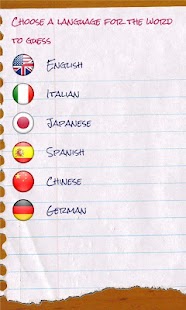 Choose a language for the word
to guess
English
Italian
Japanese
Spanish
Chinese
German